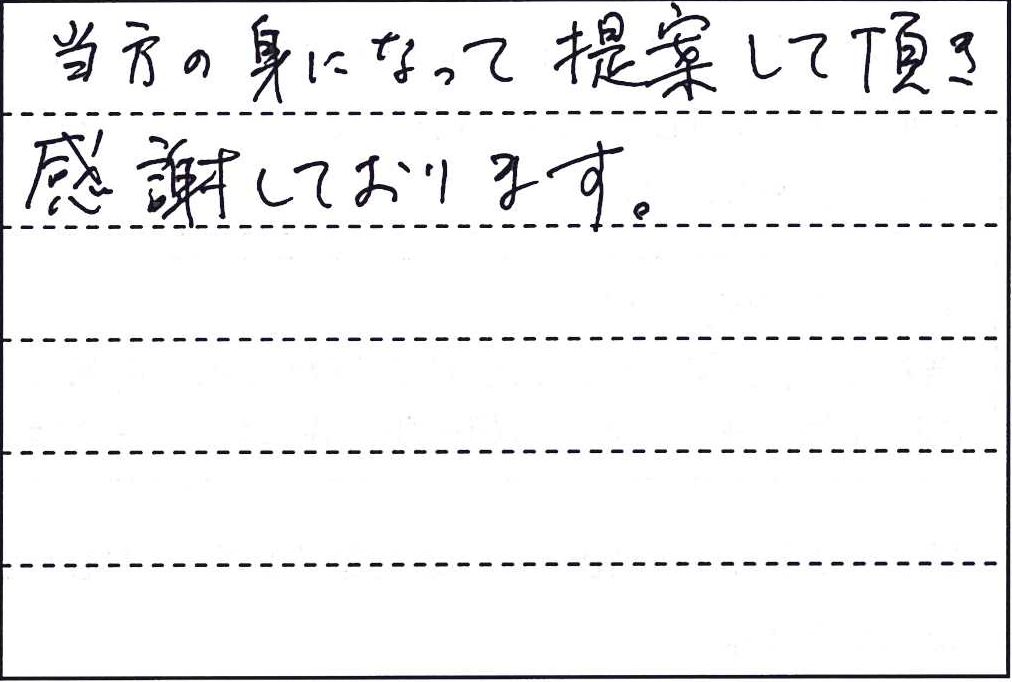 当方の身になって提案して頂き
感謝しております。